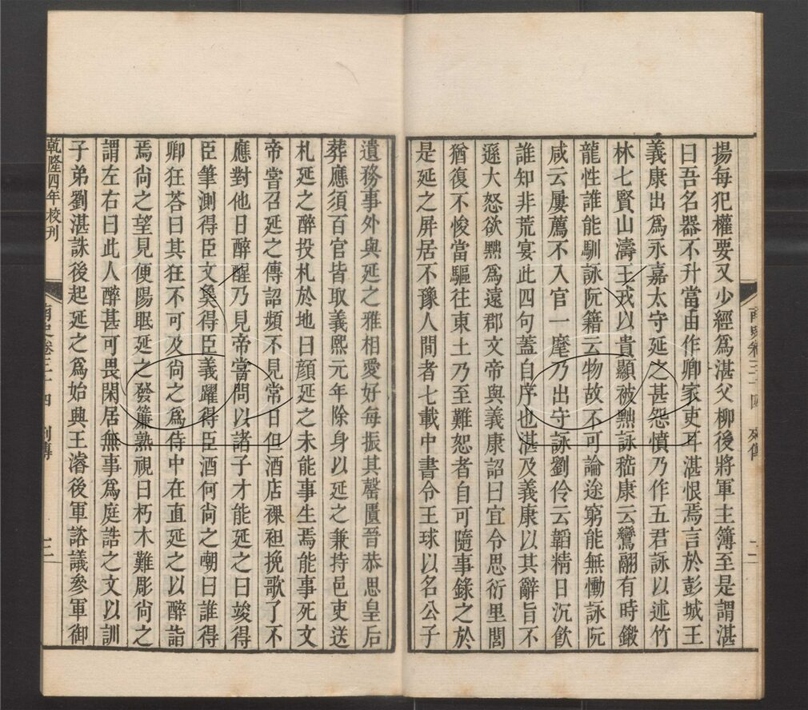 揚每犯權要又少經爲湛父柳後將軍主簿至是謂湛
曰吾名器不升當由作卿家吏耳湛恨焉言於彭城王
義康出爲永嘉太守延之甚怨憤乃作五君詠以述竹
林七賢山濤王戎以貴顯被黜詠嵇康云鸞翮有時鎩
龍性誰能馴詠阮籍云物故不可論途窮能無慟詠阮
咸云屢薦不入官一麾乃出守詠劉伶云韜精日沉飲
誰知非荒宴此四句蓋自序也湛及義康以其辭旨不
遜大怒欲黜爲遠郡文帝與義康詔曰宜令思愆里閭
猶復不悛當驅往東土乃至難恕者自可隨事錄之於
是延之屏居不豫人間者七載中書令王球以名公子
遺務事外與延之雅相愛好每振其罄匱晉恭思皇后
葬應須百官皆取義熙元年除身以延之兼持邑吏送
札延之醉投札於地曰顏延之未能事生焉能事死文
帝嘗召延之傳詔頻不見常日但酒店裸袒挽歌了不
應對他日醉醒乃見帝嘗問以諸子才能延之曰竣得
臣筆測得臣文㚟得臣義躍得臣酒何尚之嘲曰誰得
卿狂答曰其狂不可及尚之爲侍中在直延之以醉詣
焉尚之望見便陽眠延之發簾熟視曰朽木難彫尚之
謂左右曰此人醉甚可畏閑居無事爲庭誥之文以訓
子弟劉湛誅後起延之爲始興王濬後軍諮議參軍御
乾隆四年校刊
南史卷三十四 列傳